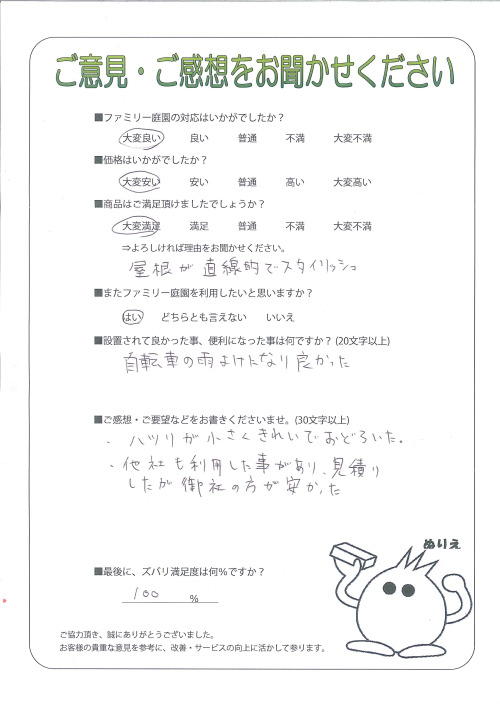 ご意見・ご感想をお聞かせください
■ファミリー庭園の対応はいかがでしたか？
大変良い 良い 普通 不満 大変不満
■価格はいかがでしたか？
大変安い 安い 普通 高い 大変高い
■商品はご満足頂けましたでしょうか？
大変満足 満足 普通 不満 大変不満
⇒よろしければ理由をお聞かせください。
屋根が直線的でスタイリッシュ
■またファミリー庭園を利用したいと思いますか？
はい どちらとも言えない いいえ
■設置されて良かった事、便利になった事は何ですか？(20文字以上)
自転車の雨よけになり良かった
■ご感想・ご要望などをお書きくださいませ。(30文字以上)
・ハツリが小さくきれいでおどろいた。
・他社も利用した事があり、見積り
したが御社の方が安かった
ぬりえ
■最後に、ズバリ満足度は何％ですか？
100 ％
ご協力頂き、誠にありがとうございました。
お客様の貴重な意見を参考に、改善・サービスの向上に活かして参ります。